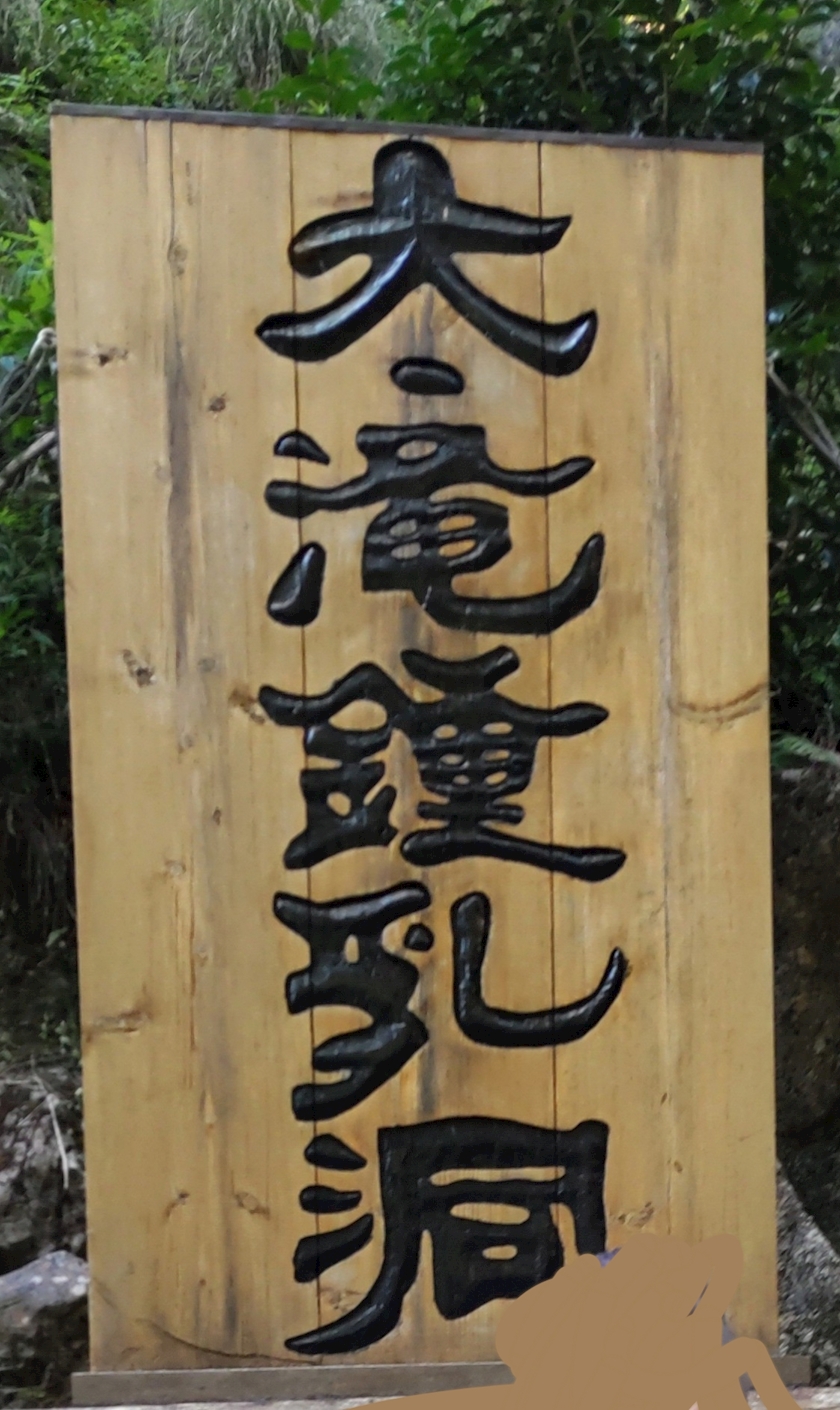 大滝鍾乳洞